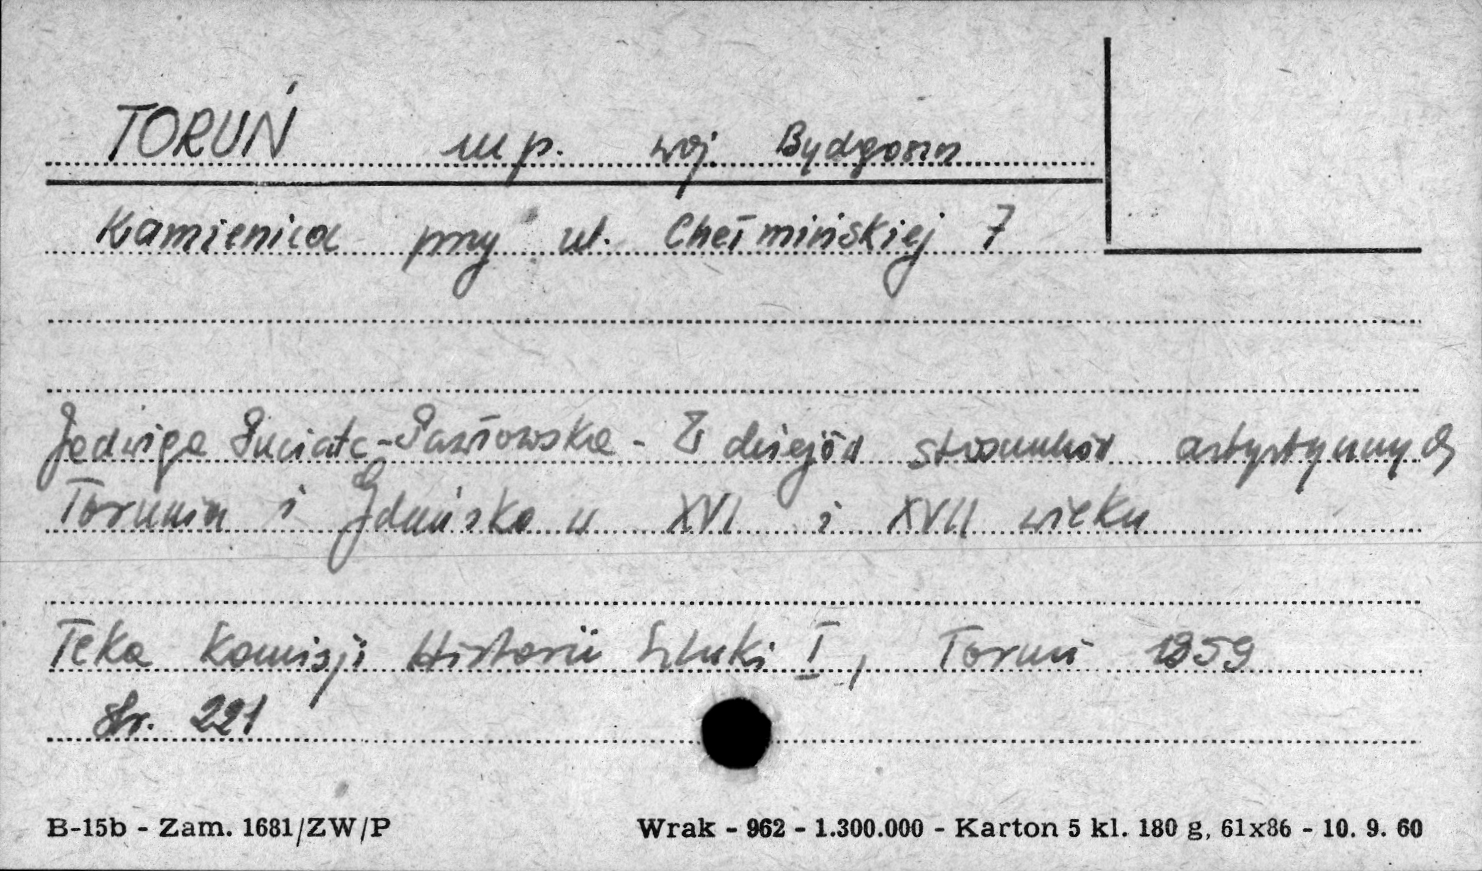 TORUŃ m p. woj. Bydgoszcz
Kamienica przy ul. Chełmińskiej 7
Jadwiga Puciata-Pawłowska - Z dziejów stosunków artystycznych
Torunia i Gdańska w XVI i XVII wieku
Teka Komisji Historii Sztuki I, Toruń 1959
str. 221
B-15b - Zam. 1681/ZW/P
Wrak - 962 - 1.300.000 - Karton 5 kl. 180 g, 61x86 - 10. 9. 60